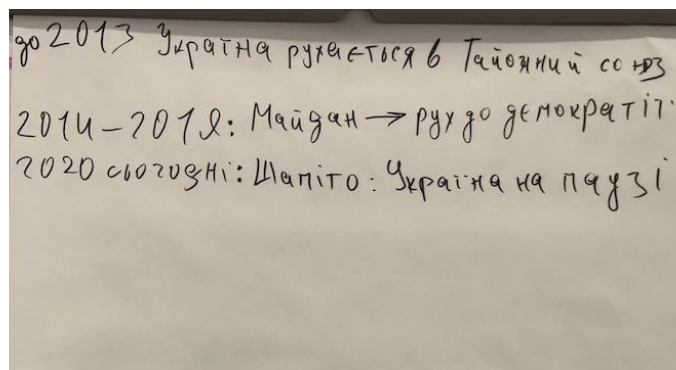 до 2013 Україна рухається в Тайожний союз
2014-2019: Майдан → рух до демократії
2020 сьогодні: Шапіто: Україна на паузі